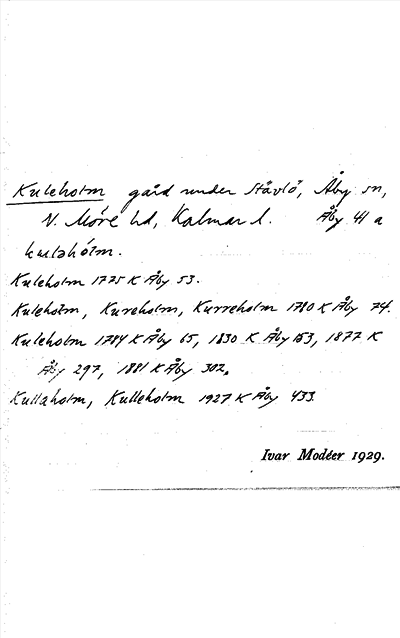 Kuleholm gård under Stävlö, Åby sn,
N. Möre hd, Kalmar l. Åby 41 a
kuləhólm.
Kuleholm 1775 K Åby 53.
Kuleholm, Kureholm, Kurreholm 1780 K Åby 74.
Kuleholm 1784 K Åby 65, 1830 K Åby 153, 1877 K
Åby 297, 1881 K Åby 302.
Kullaholm, Kulleholm 1927 K Åby 433
Ivar Modéer 1929.